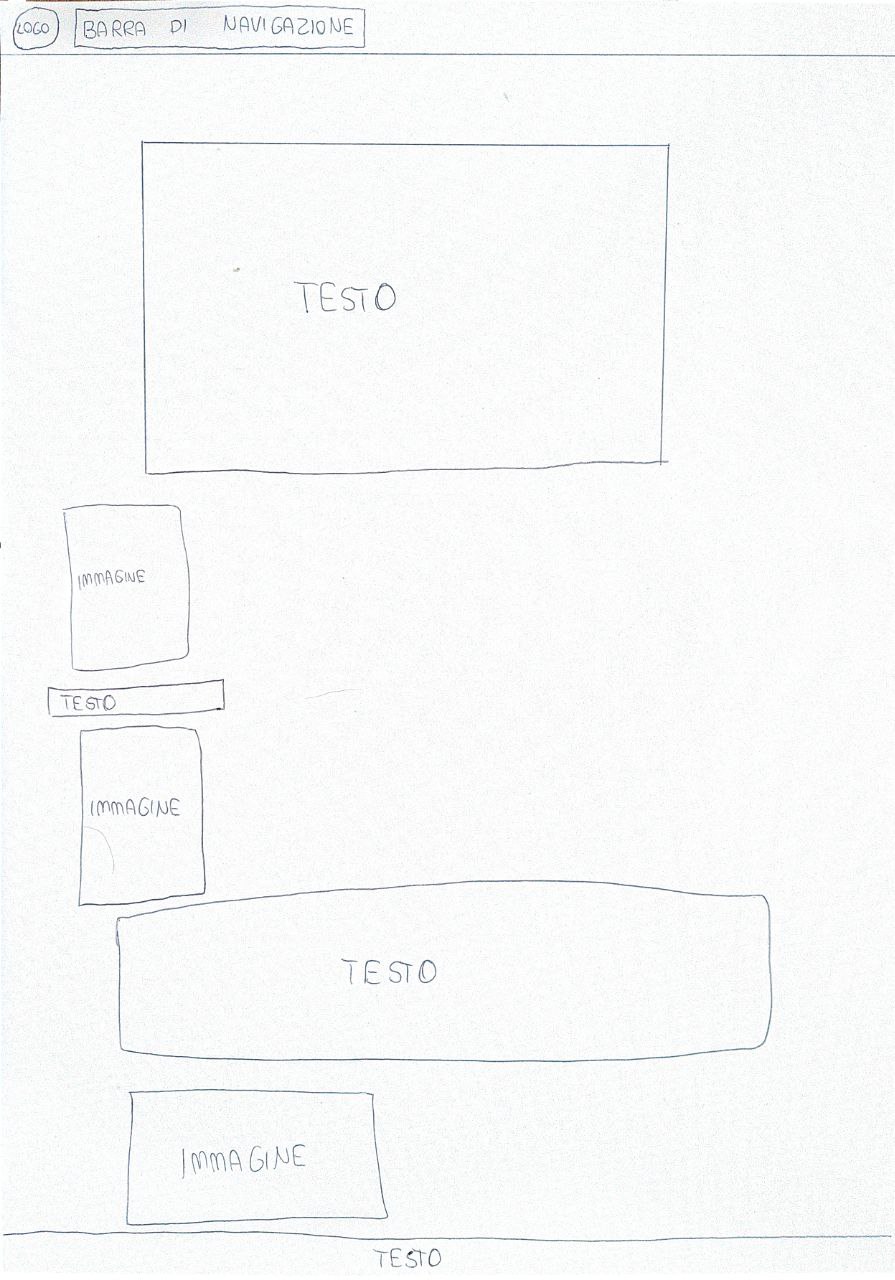 LOGO BARRA DI NAVIGAZIONE
TESTO
IMMAGINE
TESTO
IMMAGINE
TESTO
IMMAGINE
TESTO